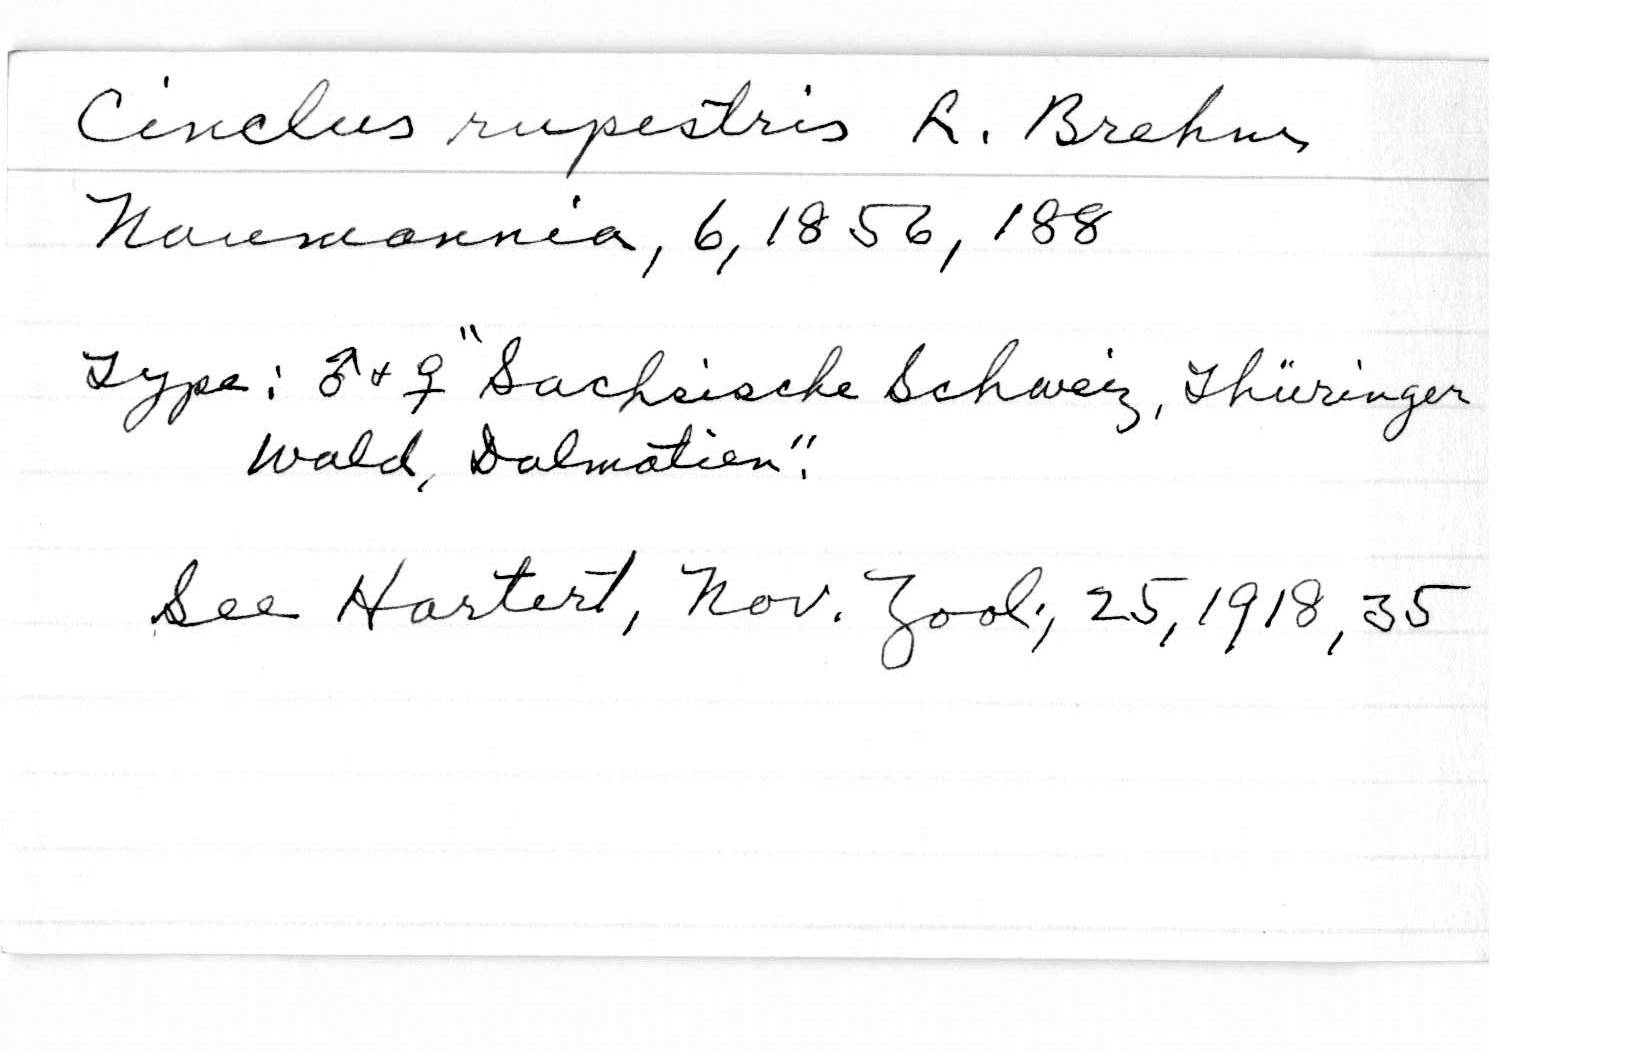 Cinclus rupestris R. Brehm
Naumannia, 6, 1856, 188
Type: ♂ + ♀ "Sachsische Schweiz, Thüringer
Wald, Dalmatien".
See Hartert, Nov. Zool., 25, 1918, 35